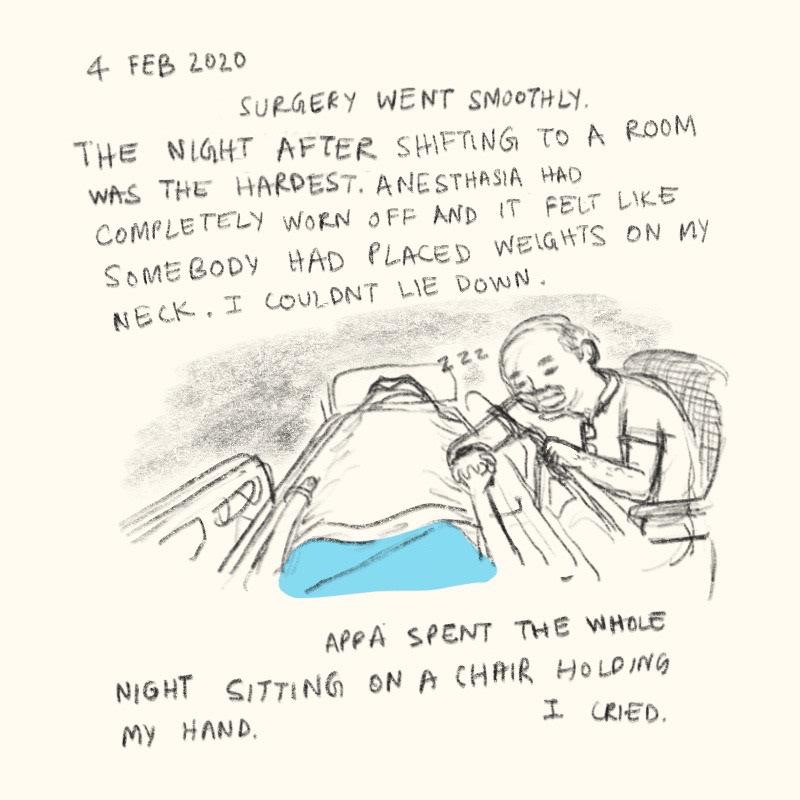 4 FEB 2020
SURGERY WENT SMOOTHLY.
THE NIGHT AFTER SHIFTING TO A ROOM
WAS THE HARDEST. ANESTHASIA HAD
COMPLETELY WORN OFF AND IT FELT LIKE
SOMEBODY HAD PLACED WEIGHTS ON MY
NECK. I COULDNT LIE DOWN.
zzz
APPA SPENT THE WHOLE
NIGHT SITTING ON A CHAIR HOLDING
MY HAND. I CRIED.